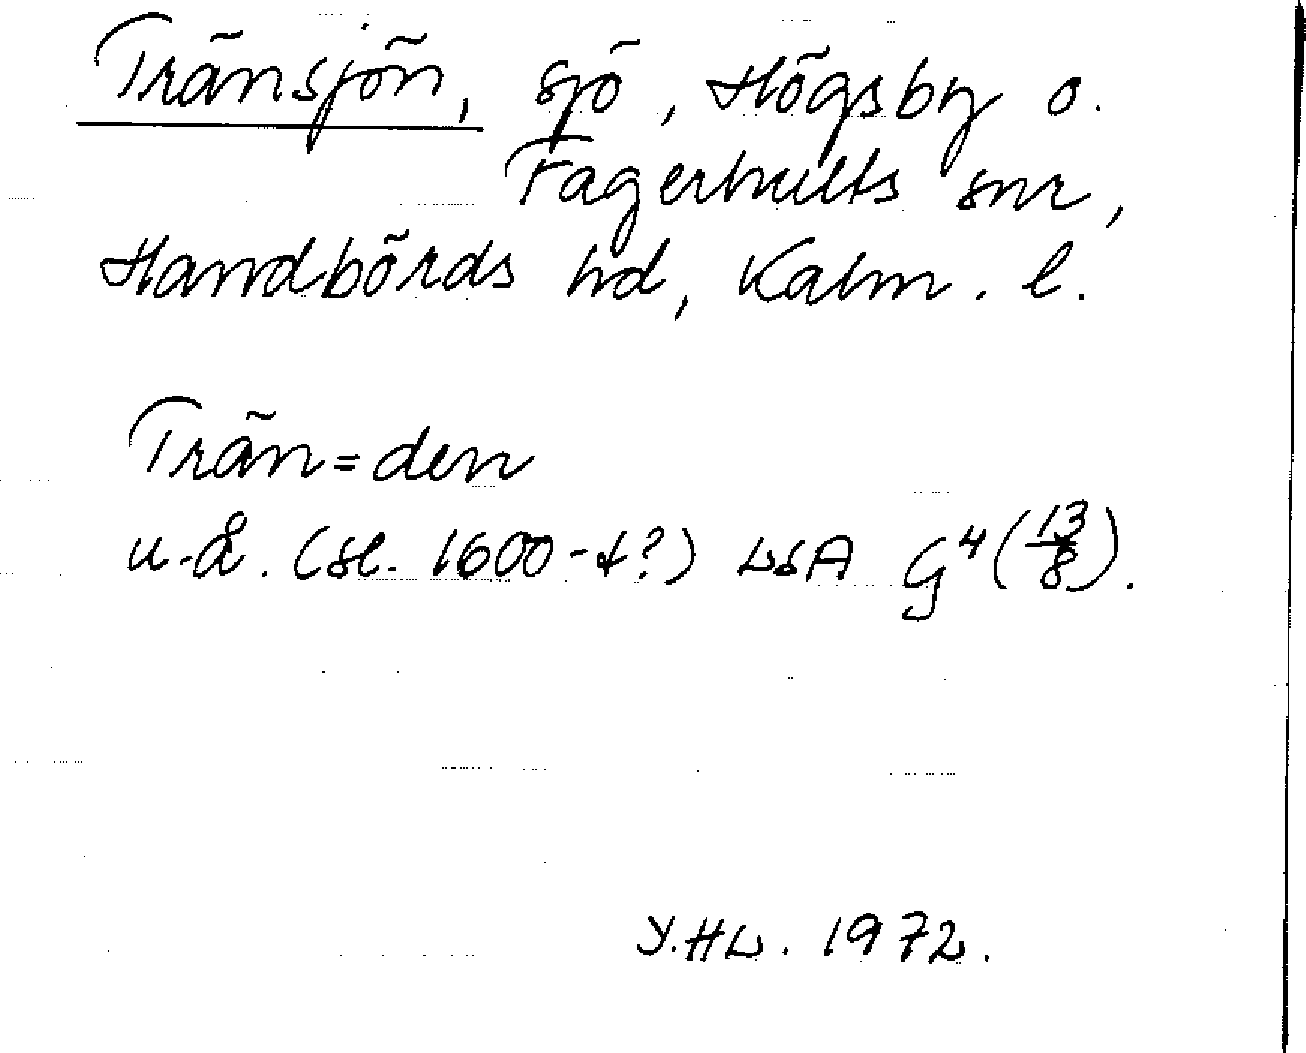 Tränsjön, sjö, Högsby o.
Fagerhults snr,
Handbörds hd, Kalm. l.
Trän=den
u.å. (sl. 1600-t?) LSA G⁴(13/8).
Y.HL. 1972.